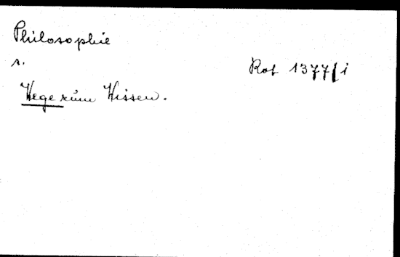 Philosophie
s. Rof 1377/i
Wege zum Wissen.